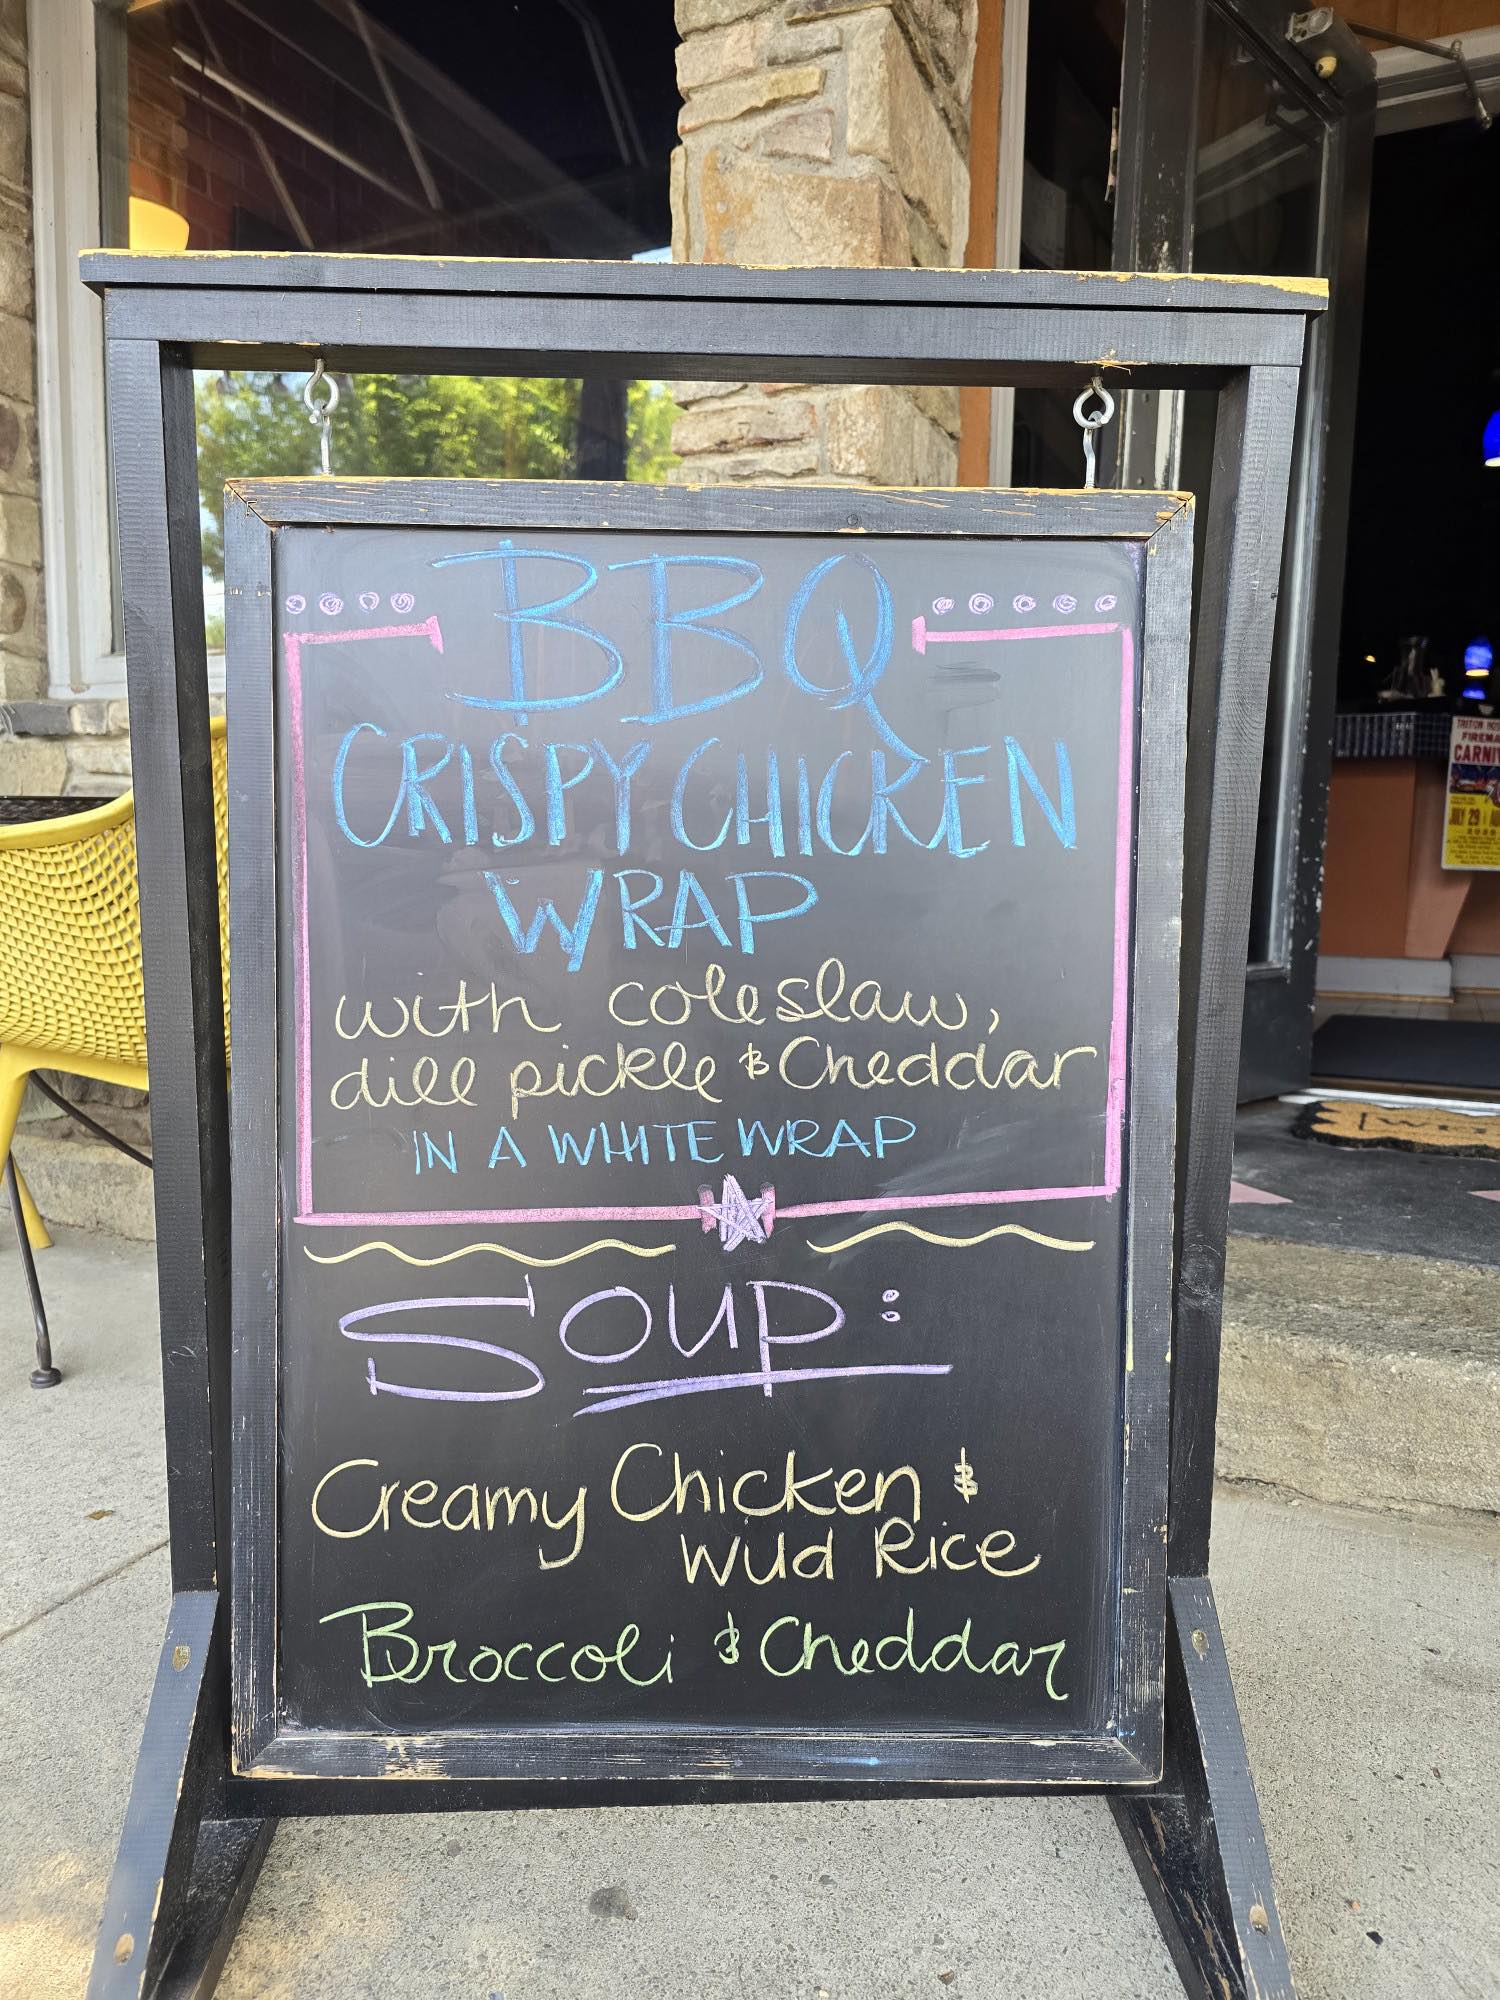 BBQ
CRISPY CHICKEN
WRAP
with coleslaw,
dill pickle & Cheddar
IN A WHITE WRAP
SOUP:
Creamy Chicken &
Wild Rice
Broccoli & Cheddar
FIREMA
CARNIV
JULY 29